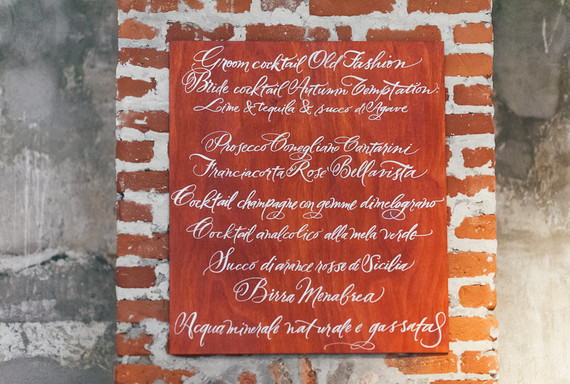 Groom cocktail Old Fashion
Bride cocktail Autumn Temptation:
Lime & tequila & succo d'Agave
Prosecco Conegliano Cantarini
Franciacorta Rosé Bellavista
Cocktail champagne con gemme di melograno
Cocktail analcolico alla mela verde
Succo di arance rosse di Sicilia
Birra Menabrea
Acqua minerale naturale e gassata